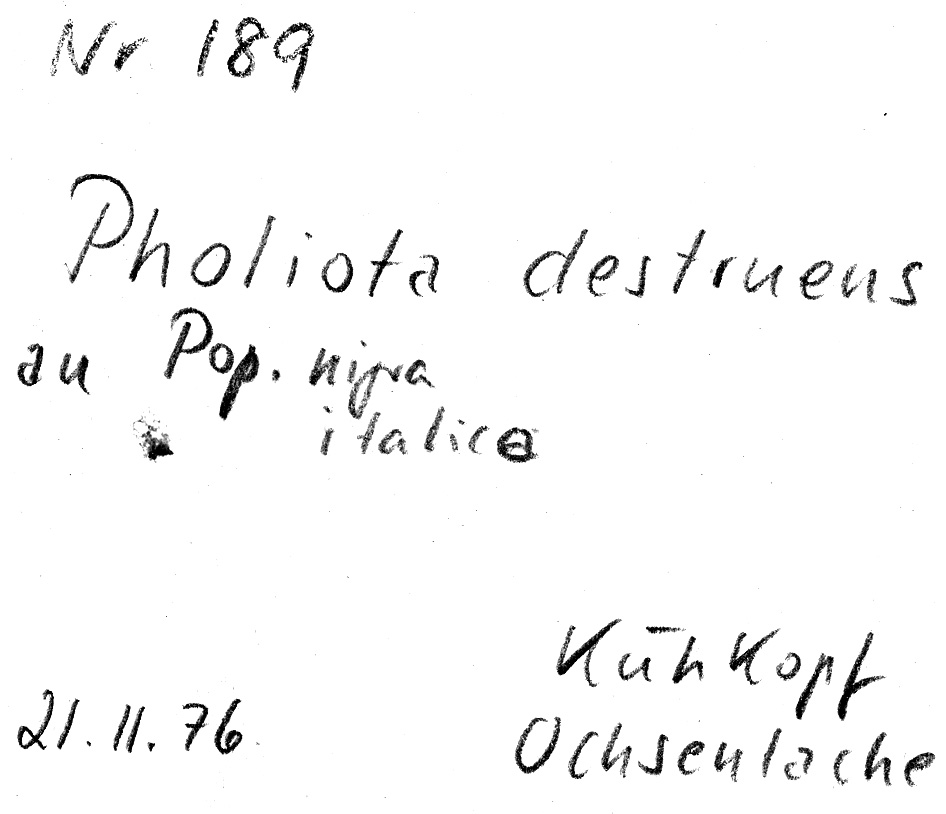 Nr 189
Pholiota destruens
an Pop. nigra
italica
Kühkopf
21.11.76
Ochsenlache